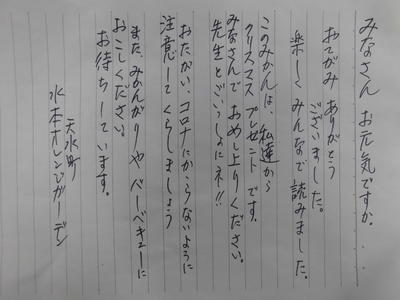 みなさん お元気ですか..
おてがみ ありがとう
ございました。
楽しくみんなで読みました。
このみかんは、私達から
クリスマスプレゼントです。
みなさんで おめし上りください。
先生とごいっしょにネ!!
おたがい、コロナにかからないように
注意してくらしましょう
また、みかんがりや バーベキューに
おこしください。
お待ちしています。
天水町
水本オレンジガーデン